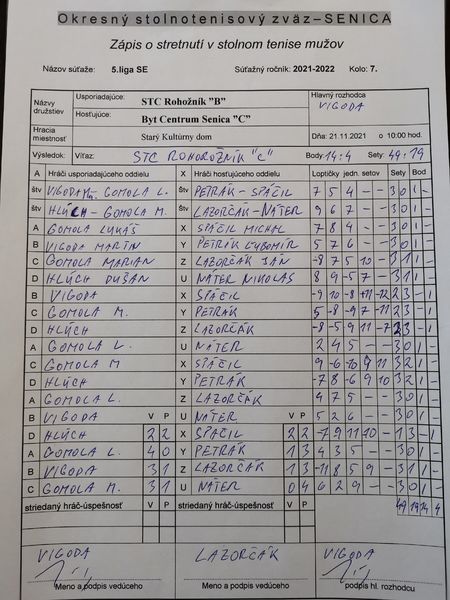 Okresný stolnotenisový zväz–SENICA
Zápis o stretnutí v stolnom tenise mužov
Názov súťaže: 5.liga SE Súťažný ročník: 2021-2022 Kolo: 7.
Názvy družstiev Usporiadajúce: STC Rohožník "B" Hlavný rozhodca VIGODA
Hosťujúce: Byt Centrum Senica "C"
Hracia miestnosť Starý Kultúrny dom Dňa: 21.11.2021 o 10:00 hod.
Výsledok: Víťaz: STC ROHOROŽNÍK "C" Body: 14:4 Sety: 49:19
A Hráči usporiadajúceho oddielu X Hráči hosťujúceho oddielu Loptičky jedn. setov Sety Bod
štv VIGODA M. - GOMOLA L. štv PETRÁK - SPÁČIL 7 5 4 - - 3 0 1 -
štv HLÚCH - GOMOLA M. štv LAZORČÁK - NÁTER 9 6 7 - - 3 0 1 -
A GOMOLA LUKÁŠ X SPÁČIL MICHAL 7 8 4 - - 3 0 1 -
B VIGODA MARTIN Y PETRÁK ĽUBOMÍR 5 7 6 - - 3 0 1 -
C GOMOLA MARIAN Z LAZORČÁK JÁN -8 7 5 10 - 3 1 1 -
D HLÚCH DUŠAN U NÁTER NIKOLAS 8 9 -5 7 - 3 1 1 -
B VIGODA X SPÁČIL -9 10 -8 +11 -12 2 3 - 1
C GOMOLA M. Y PETRÁK 5 -8 -9 7 -11 2 3 - 1
D HLÚCH Z LAZORČÁK -8 -5 9 11 -7 2 3 - 1
A GOMOLA L. U NÁTER 2 4 5 - - 3 0 1 -
C GOMOLA M X SPÁČIL 9 -6 -10 9 11 3 2 1 -
D HLÚCH Y PETRÁK -7 8 -6 9 10 3 2 1 -
A GOMOLA L. Z LAZORČÁK 4 7 5 - - 3 0 1 -
B VIGODA V P U NÁTER V P 5 2 6 - - 3 0 1 -
D HLÚCH 2 2 X SPÁČIL 2 2 -7 9 -11 -10 - 1 3 - 1
A GOMOLA L. 4 0 Y PETRÁK 1 3 4 3 5 - - 3 0 1 -
B VIGODA 3 1 Z LAZORČÁK 1 3 -11 8 5 9 - 3 1 1 -
C GOMOLA M. 3 1 U NÁTER 0 4 6 2 9 - - 3 0 1 -
striedaný hráč-úspešnosť V P striedaný hráč-úspešnosť V P 49 19 14 4
VIGODA LAZORČÁK VIGODA
Meno a podpis vedúceho Meno a podpis vedúceho podpis hl. rozhodcu